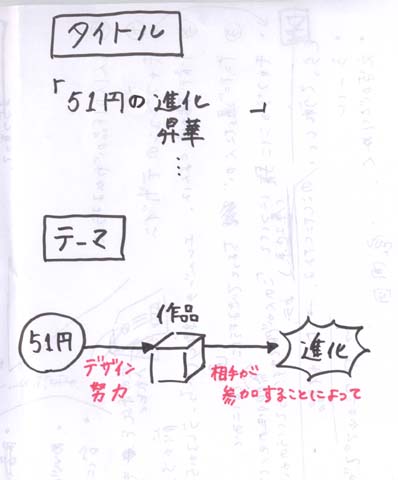 タイトル
「51円の進化
昇華
… 」
テーマ
51円
デザイン
努力
作品
相手が
参加することによって
進化